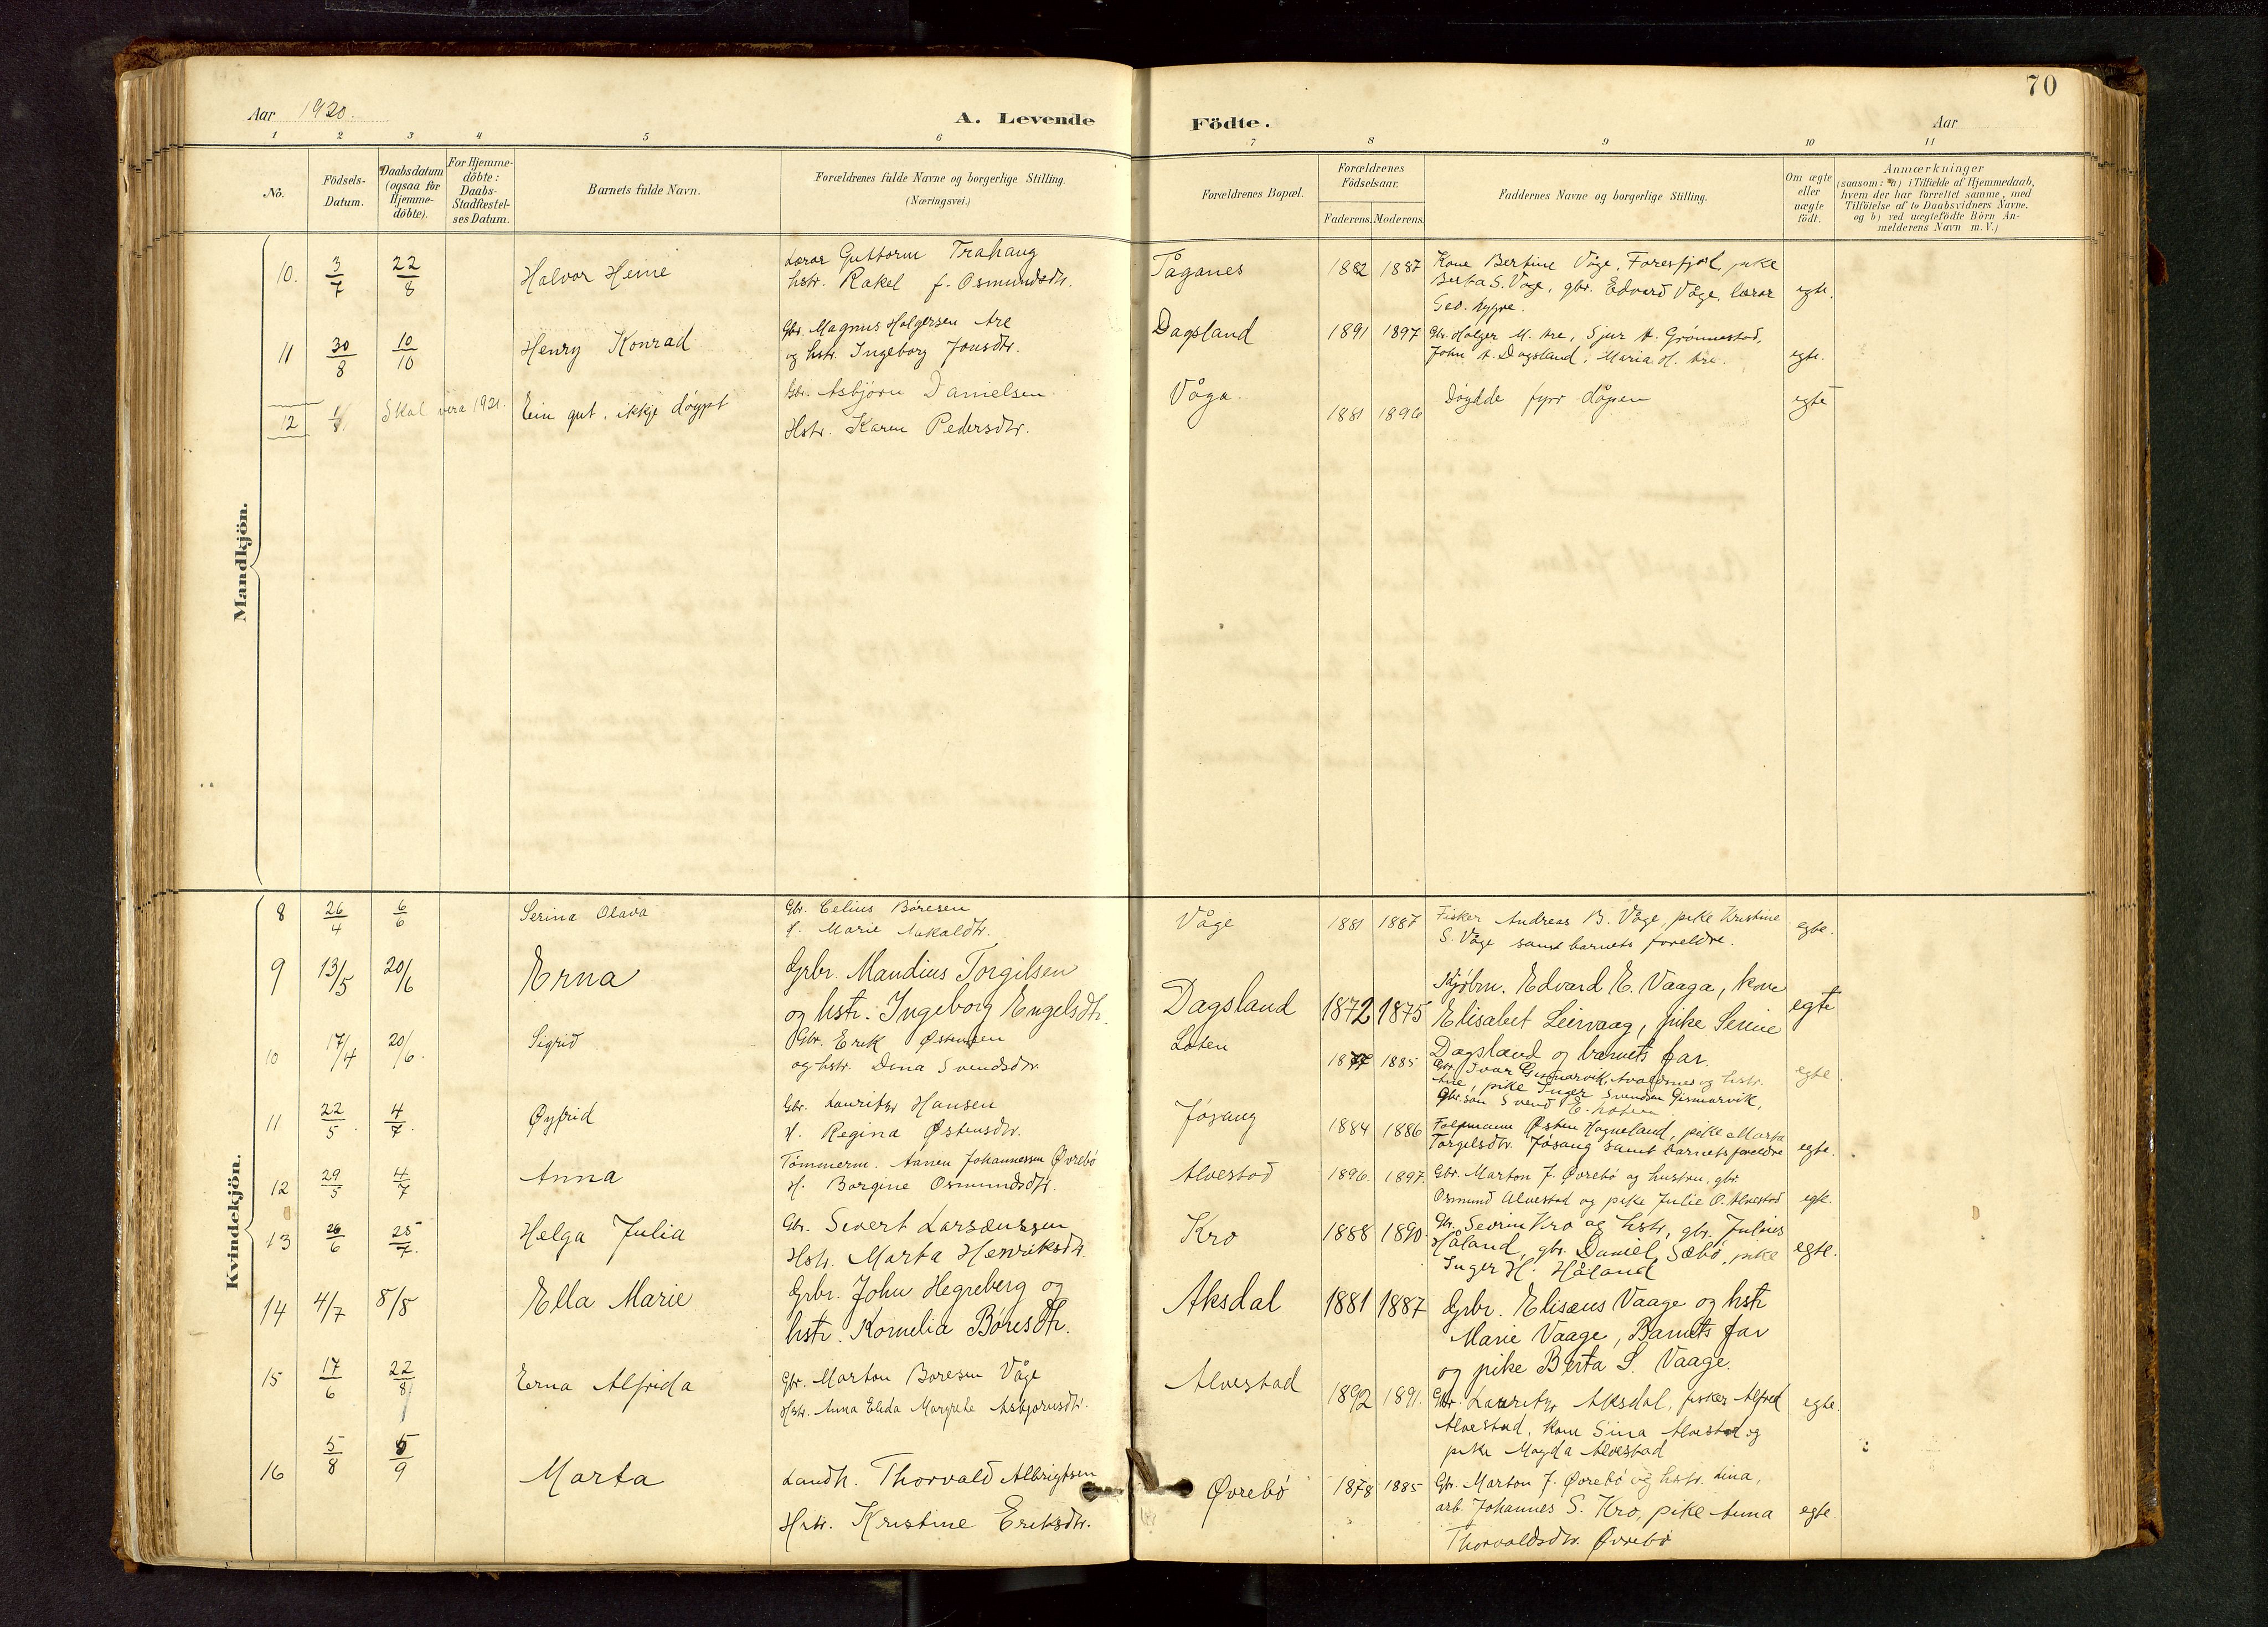 70
Aar 1920.
A. Levende
Födte.
Aar
1 2 3 4 5 6 7 8 9 10 11
No.
Födsels-
Datum.
Daabsdatum
(ogsaa for
Hjemme-
döbte).
For Hjemme-
döbte:
Daabs-
Stadfæstel-
ses Datum.
Barnets fulde Navn.
Forældrenes fulde Navne og borgerlige Stilling.
(Næringsvei.)
Forældrenes Bopæl.
Forældrenes
Födselsaar.
Faderens. Moderens.
Faddernes Navne og borgerlige Stilling.
Om ægte
eller
uægte
födt.
Anmærkninger
(saasom: a) i Tilfælde af Hjemmedaab,
hvem der har forrettet samme, med
Tilföielse af to Daabsvidners Navne.
og b) ved uægtefödte Börn An-
melderens Navn m. V.)
Mandkjön.
10. 3/7 22/8 Halvor Heine
Lærar Guttorm Trahaug
hstr. Rakel f. Osmundsdtr.
Tåganes 1882 1887
Kone Bertine Våge, Foresfjord, pike
Berta S. Våge, gbr. Edvard Våge, lærar
Geo. Nygre.
egte.
11 30/8 10/10 Henry Konrad
Gbr. Magnus Holgersen Are
og hstr. Ingeborg Jonsdtr.
Dagsland 1891 1897
Gbr. Holger M. Are, Sjur A. Grönnestad,
John A. Dagsland, Maria H. Are.
egte.
12 Skal vera 1921. Ein gut, ikkje döypt
Gbr. Asbjörn Danielsen
Hstr. Karen Pedersdtr.
Våga. 1881 1896
Döydde fyrr dåpen
egte
Kvindekjön.
8 26/4 6/6 Serina Olava
Gbr. Celius Böresen
H. Marie Aakaldtr.
Våge 1881 1887
Fisker Andreas B. Våge, pike Kristine
S. Våge samt barnets foreldre.
egte.
9 13/5 20/6 Erna
Grbr. Mandius Torgilsen
og hstr. Ingeborg Engelsdtr.
Dagsland 1872 1875
Kjöbm. Edvard E. Vaaga, kone
Elisabet Leirvaag, pike Serine
Dagsland og barnets far.
egte
10 17/4 20/6. Sigrid
Gbr. Erik Østensen
og hstr. Dina Svendsdtr.
Loten 1877 1885
Gbr. Ivar Gismarvik, Avaldsnes og hstr.
Are, pike Inger Svendsen Gismarvik,
Gbr.son Svend E. Loten
egte
11 22/5. 4/7. Øyfrid
Gbr. Lauritz Hansen
H. Regina Østensdtr.
Jösang 1884 1886
Østen Hagneland, pike Marta
Torgelsdtr. Jösang samt barnets foreldre
egte.
12 29/5 4/7 Anna
Tömmerm. Annen Johannessen Øvrebö
H. Borgine Osmundsdtr.
Alvestad 1896. 1897.
Gbr. Marton J. Øvrebö og hustru, gbr.
Osmund Alvestad og pike Julie O. Alvestad
egte.
13 26/6 25/7. Helga Julia
Gbr. Severt Larsenssen
Hstr. Marta Henriksdtr.
Kro 1888 1890.
Gbr. Sevrin Kro og hstr, gbr. Julius
Håland, gbr. Daniel Sæbö, pike
Inger H. Håland
egte.
14 4/7 8/8 Ella Marie
Grbr. John Hegreberg og
hstr. Kornelia Böresdtr.
Aksdal 1881 1887
Grbr. Elisæus Vaage og hstr
Marie Vaage, Barnets far
og pike Berta S. Vaage.
15 17/6 22/8 Erna Alfrida
Gbr. Marton Boresen Våge
Hstr. Anna Elida Margrete Asbjornsdtr.
Alvestad 1892 1891.
Gbr. Lauritz Aksdal, fisker Alfred
Alvestad, kone Sina Alvestad og
pike Magda Alvestad
egte.
16 5/8 5/9 Marta
Landh. Thorvald Albrigtsen
Hstr. Kristine Eriksdtr.
Øvrebö 1878 1885
Gbr. Marton J. Øvrebö og hstr. Lina,
arb. Johannes S. Kro, pike Anna
Thorvaldsdtr. Øvrebö
egte.